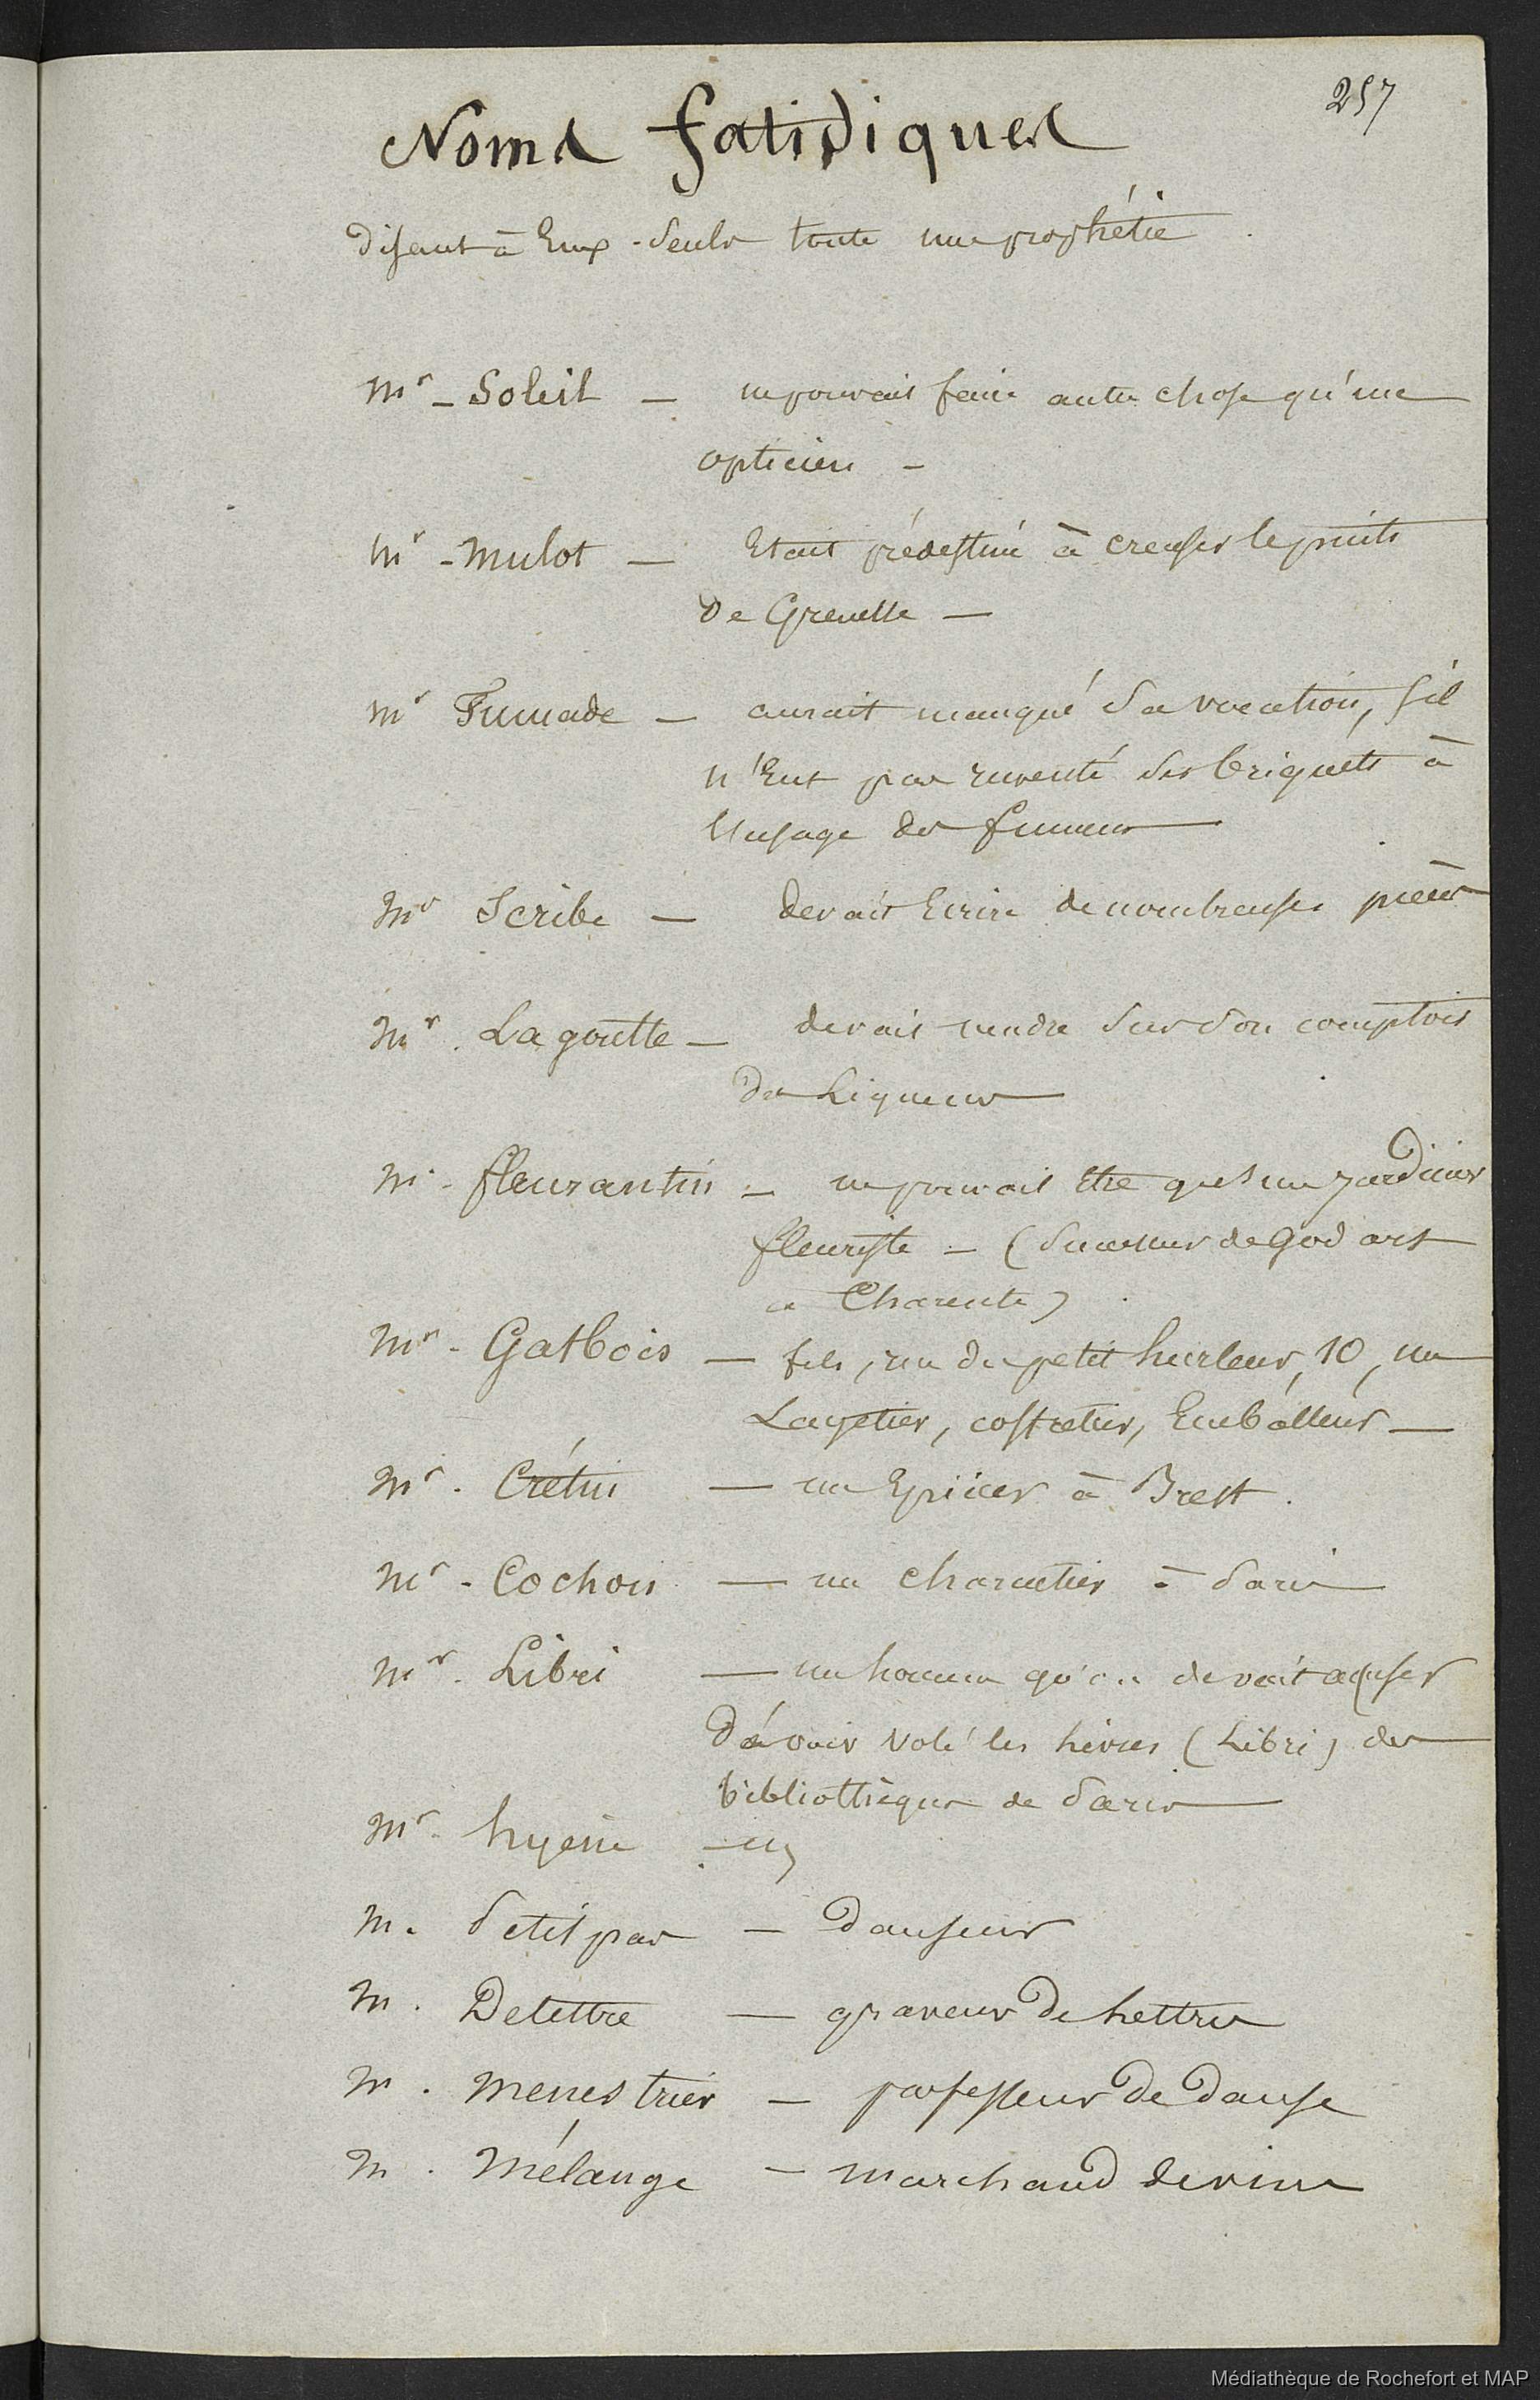 257
Noms fatidiques
disant à Eux-Seuls toute une prophétie
Mr - Soleil — ne pouvait faire autre chose qu'un
opticien —
Mr - Mulot — Etait prédestiné à creuser le puits
de Grenelle —
Mr Fumade — aurait manqué sa vocation, s'il
n'Eut pas inventé des briquets à
l'usage des fumeurs
Mr Scribe — devait Ecrire de nombreuses pièces
Mr. Lagoutte — devait vendre sur son comptoir
des Liqueurs
Mr - fleurantin — ne pouvait Etre qu'un jardinier
fleuriste — (Successeur de Godart
à Charente)
Mr - Gatbois — fils, rue du petit hurleur, 10, un
Layetier, coffretier, Emballeur —
Mr. Crétin — un Epicier à Brest.
Mr - Cochois — un charcutier à Paris
Mr. Libri — un homme qu'on devait accuser
d'avoir volé les livres (Libri) des
bibliothèques de Paris
Mr. hyène —
M. Petitpas — danseur
M. Delettre — graveur de Lettres
M. Menestrier — professeur de danse
M. Mélange — marchand de vins
Médiathèque de Rochefort et MAP